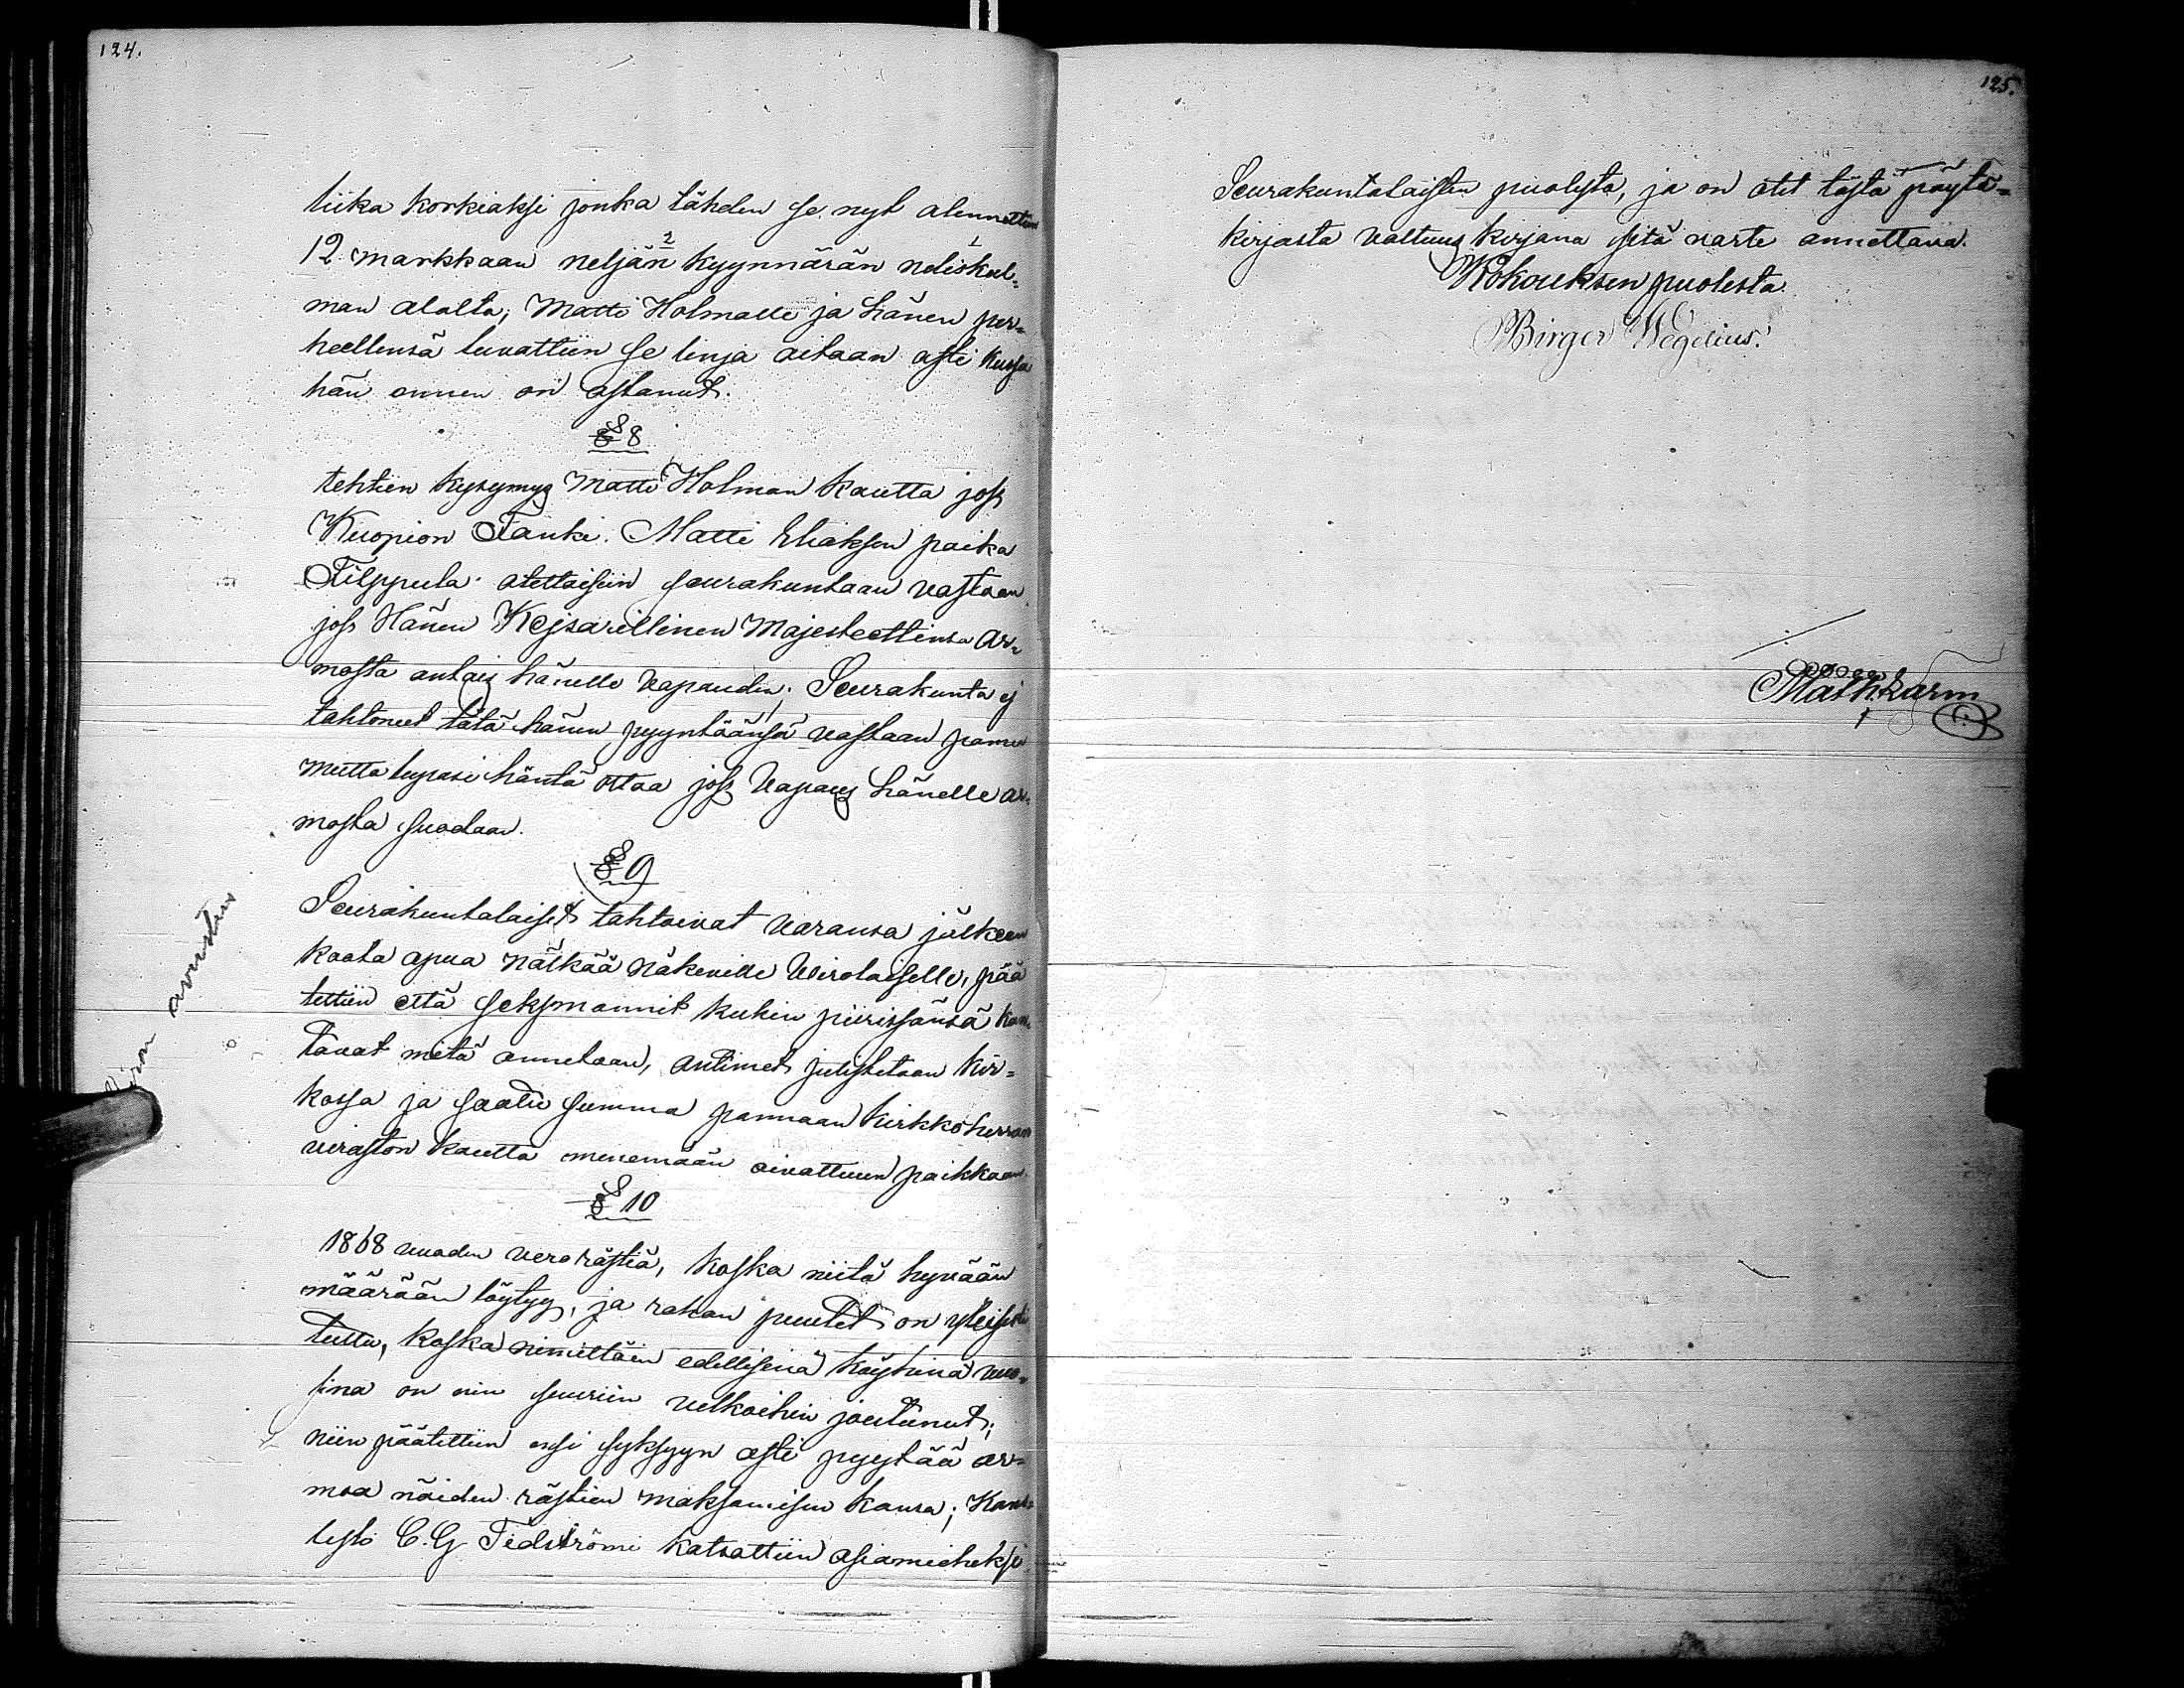 124.
liika korkiaksi jonka tähden se nyt alennettiin
12 markkaan neljän kyynnärän neliskul-
man alalta; Matti Holmalle ja hänen per-
heellensä luvattiin se linja aitaan asti kussa
hän ennen on astanut.
§ 8
tehtiin kysymys Matti Holman kautta joss
Kuopion Fanki Matti Eliaksen paika
Filppula otettaisiin seurakuntaan vastaan
joss Hänen Kejsarillinen Majesteettinsa ar-
mosta antais hänelle vapauden; Seurakunta ej
tahtoneet tätä hänen pyyntöänsä vastaan panna
mutta lupasi häntä ottaa joss vapaus hänelle ar-
mosta suodaan.
§ 9
Seurakuntalaiset tahtoivat varansa jälkeen
koota apua nälkää näkeville Wirolaiselle, pää
tettiin että seksmannit kukin piirissänsä kan-
tavat mitä annetaan, antimet julistetaan kir-
kossa ja saatu summa pannaan kirkkoherran
viraston kautta menemään aivattuun paikkaan.
§ 10
1868 vuoden verorästiä, koska niitä hyvään
määrään löytyy, ja rahan puutet on yleisesti
tuttu, koska nimittäin edellisenä köyhinä vuo-
sina on niin suuriin velkoihin joutunut;
niin päätettiin ensi syksyyn asti pyytää ar-
moa näiden rästien maksamisen kansa; Kant-
lysti C.G Tidströmi katsottiin asiamieheksi
avustus
125.
Seurakuntalaisten puolesta, ja on otet tästä pöytä-
kirjasta valtuus kirjana sitä varte annettava.
Kokouksen puolesta
Birger Wegelius.